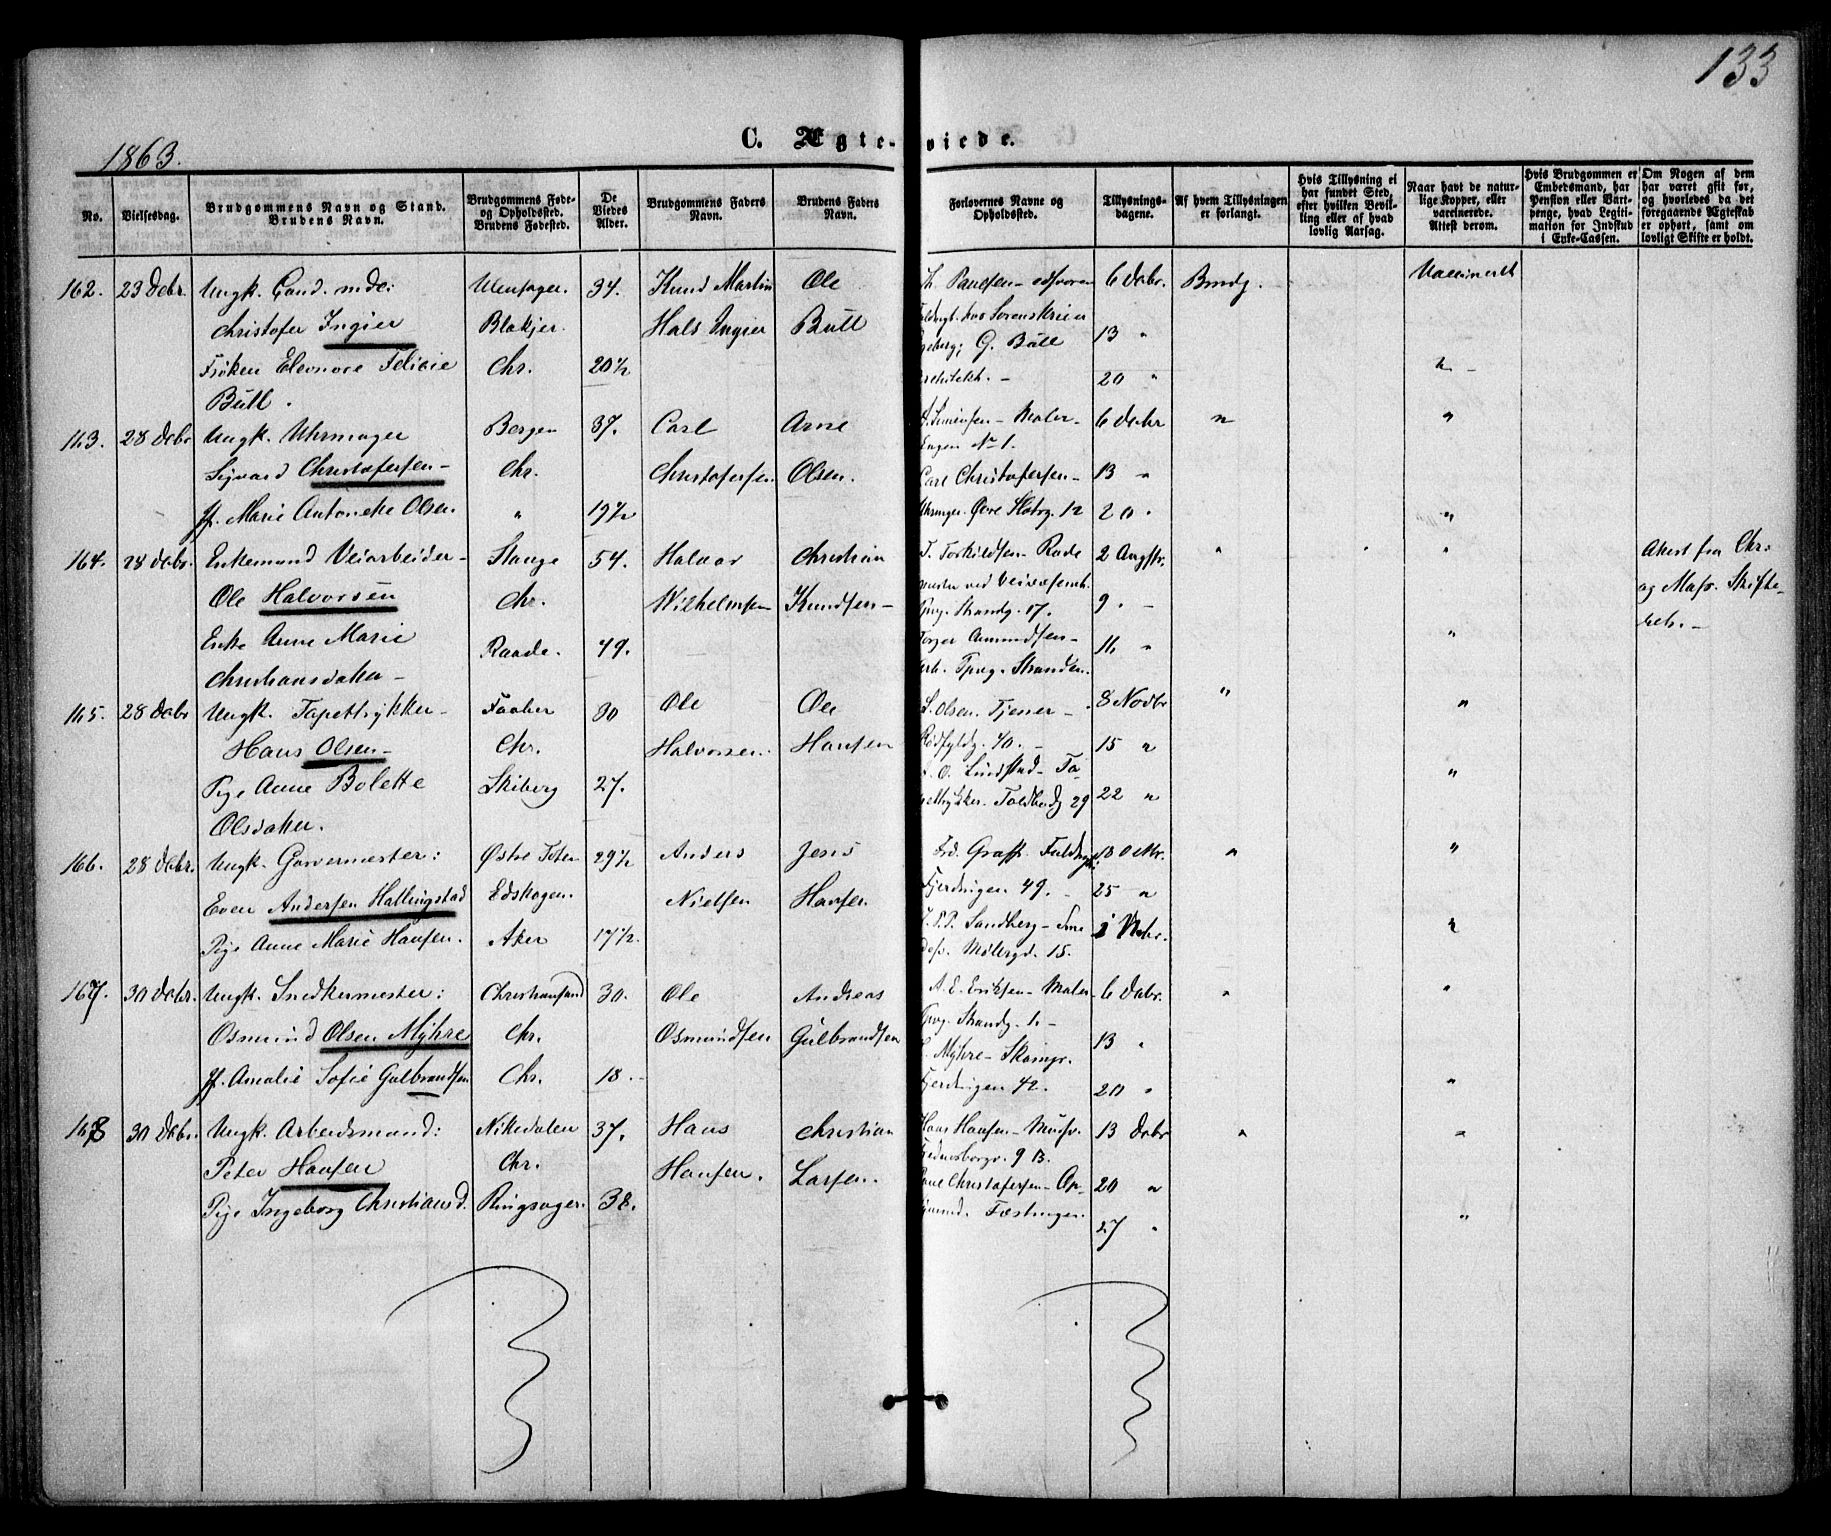 133
1863.
C. Ægte-viede.
No.
Vielsesdag.
Brudgommens Navn og Stand.
Brudens Navn.
Brudgommens Føde-
og Opholdsted.
Brudens Fødested.
De
Viedes
Alder.
Brudgommens Faders
Navn.
Brudens Faders
Navn.
Forlovernes Navne og
Opholdssted.
Tillysnings-
dagene.
Af hvem Tillysningen
er forlangt.
Hvis Tillysning ei
har fundet Sted,
efter hvilken Bevil-
ling eller af hvad
lovlig Aarsag.
Naar havt de natur-
lige Kopper, eller
vaccinerede.
Attest derom.
Hvis Brudgommen er
Embedsmand, har
Pension eller Vart-
penge, hvad Legiti-
mation for Indskud
i Enke-Cassen.
Om Nogen af dem
har været gift før,
og hvorledes da det
foregaaende Ægteskab
er ophørt, samt om
lovligt Skifte er holdt.
162. 23 Debr. Ungk. Cand. med: Ullensager. 34. Knud Martin Ole Th. Paulsen 6 Debr. Brudg. Vaccineret
Christofer Ingier Blakjer. Hals Ingier Bull hos Sorenskriver 13 "
G. Bull
Frøken Eleonore Felicie Chr. 20½ "
Bull. 20 "
163. 28 Debr Ungk. Uhrmager Bergen 37. Carl Arne Maler 6 Debr " "
Engen No 1.
Sigvard Christofersen Chr. Christofersen Olsen. Carl Christofersen 13 "
Jf. Marie Antonette Olsen. " 19½ Øvre Slotsg. 12 20 " "
164. 28 Debr. Enkemand Veiarbeider Stange 54. Halvor Christian T. Torkildsen 2 Augstr. " " " Attest fra Chr.
Ole Halvorsen Chr. Wilhelmsen Knudsen Strandg. 17. 9. og Skifte-
Enke Anne Marie Raade. 49. Amundsen 16 " " retr.
Christiansdatter Stranden.
165. 28 Debr Ungk. Tapettrykker Faaber 30 Ole Ole L. Olsen. Tjener 8 Novbr " "
Hans Olsen Chr. Halvorsen. Hansen Rødfyldg. 40. 15 "
Pige Anne Bolette Skiberg 27. Lundstad Ta- "
Olsdatter. pettrykker. Toldbodg 29 22 "
166. 28 Debr. Ungk. Garvermester: Østre Toten 29½ Anders Jens Frd. Graff. 18 Octbr. " "
Even Andersen Hallingstad Edskogen. Nielsen Hansen Fjerdingen 49. 25 "
Pige Anne Marie Hansen. Aker 17½. Sandberg 1 Nvbr.
Møllergd. 15.
167. 30 Debr. Ungk. Snedkermester: Christiansand 30. Ole Andreas A. E. Eriksen Maler 6 Debr. " "
Osmund Olsen Myhre Chr. Osmundsen Gulbrandsen Strandg. 13 "
Myhre
Jf. Amalie Sofie Gulbrandsen Chr. 18. Fjerdingen 42. 20 " "
168 30 Debr. Ungk. Arbeidsmand: Nittedalen 37. Hans Christian Hans Hansen 13 Debr " "
Peter Hansen Chr. Hansen. Larsen. 9 B.
Christofersen 20 "
Pige Ingeborg Christiansd. Ringsager. 38. Fæstningen. 27 " "